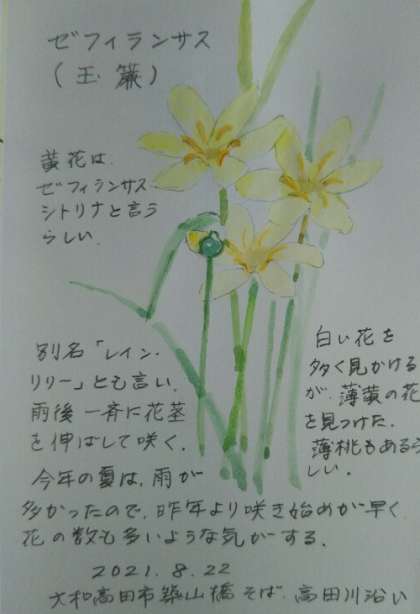 ゼフィランサス
(玉簾)
黄花は、
ゼフィランサス
シトリナと言う
らしい。
別名「レイン・
リリー」とも言い、
雨後一斉に花茎
を伸ばして咲く。
白い花を
多く見かける
が、薄黄の花
を見つけた。
薄桃もあるら
しい。
今年の夏は、雨が
多かったので、昨年より咲き始めが早く、
花の数も多いような気がする。
2021.8.22
大和高田市築山橋そば、高田川沿い